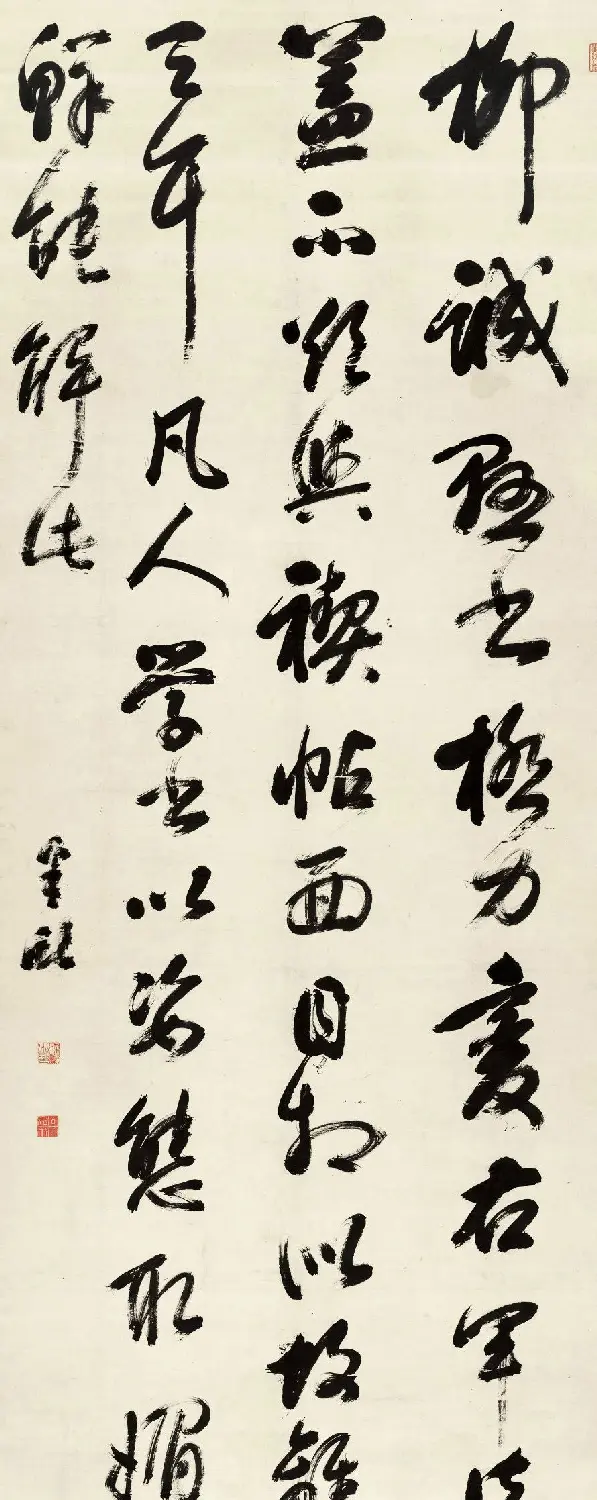 柳誠懸書極力變右軍法
蓋不欲與禊帖面目相似故離
之耳凡人學書以姿態取媚
鮮能解此